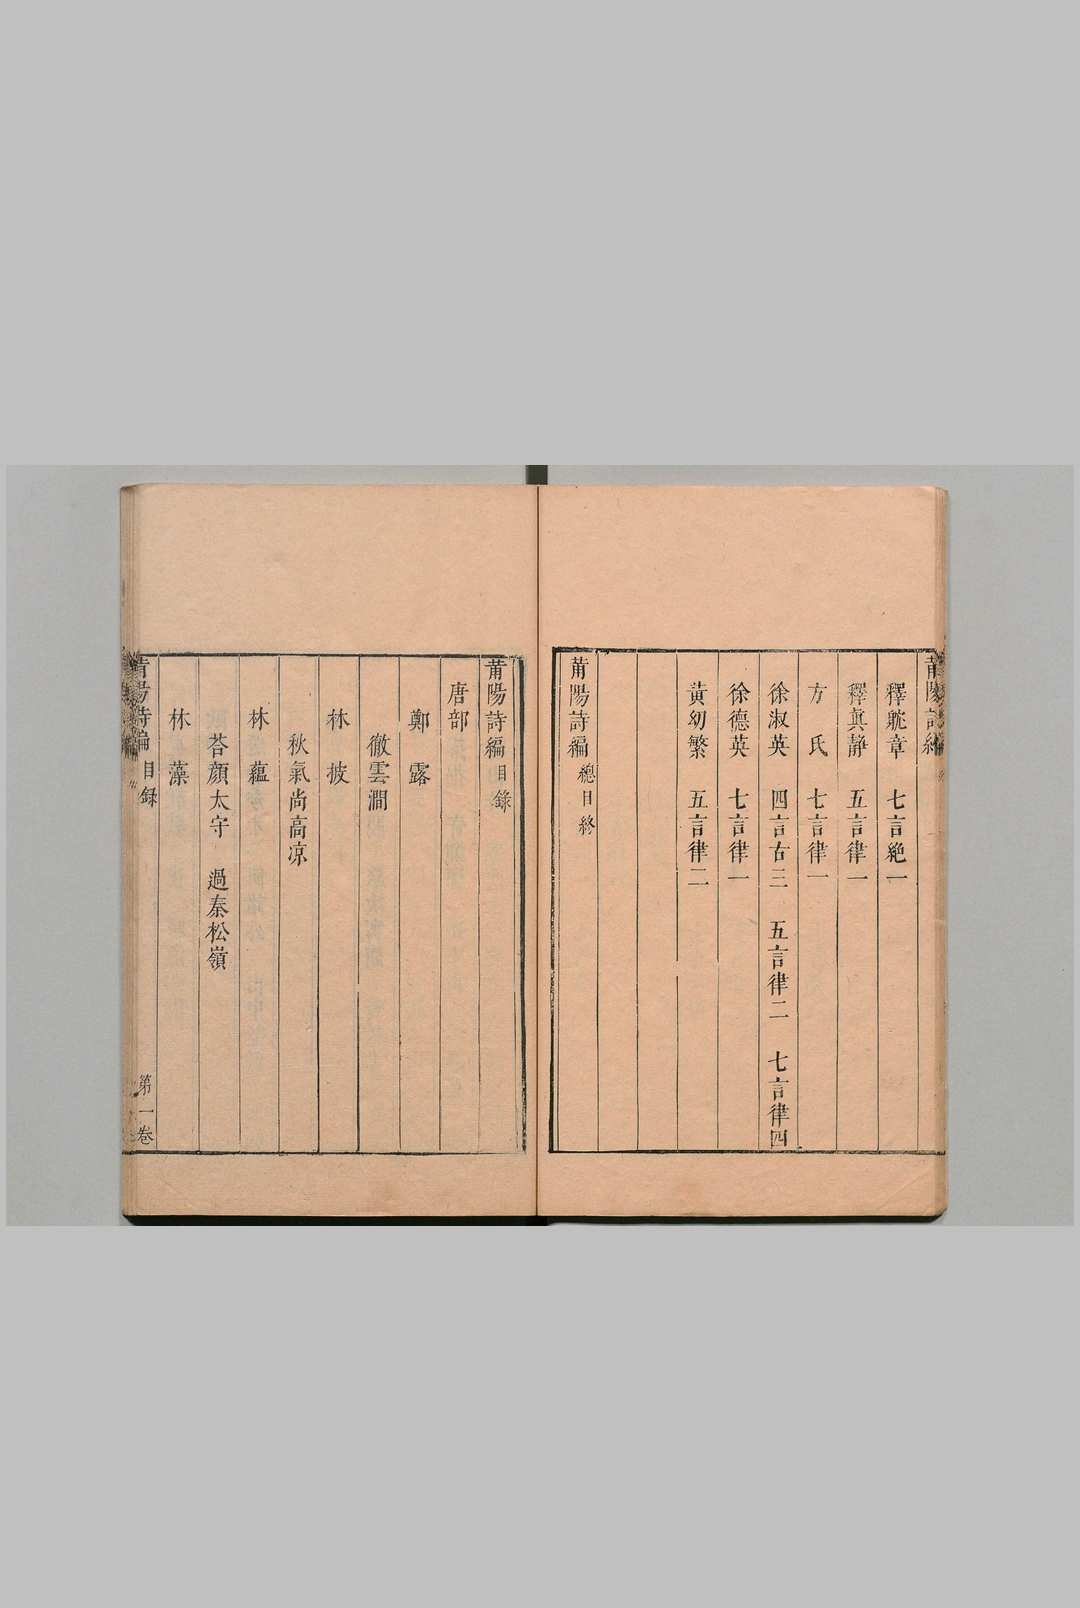 莆陽詩編
釋躭章　七言絕一
釋眞静　五言律一
方　氏　七言律一
徐淑英　四言古三　五言律二　七言律四
徐德英　七言律一
黃幼繁　五言律二
莆陽詩編總目終
莆陽詩編目錄
唐部
鄭　露
徹雲澗
林　披
秋氣尚高凉
林　蘊
荅顔太守　過秦松嶺
林　藻
莆陽詩編目録　第一卷